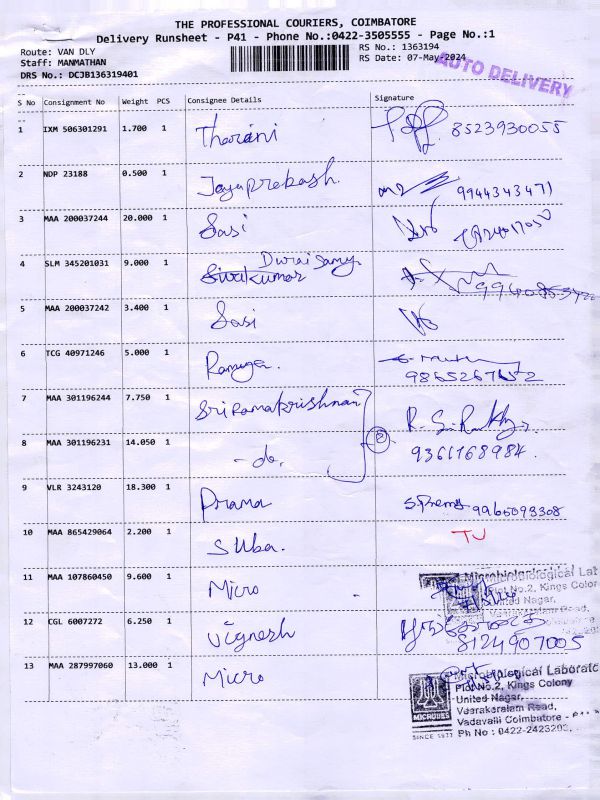 THE PROFESSIONAL COURIERS, COIMBATORE
Delivery Runsheet - P41 - Phone No.:0422-3505555 - Page No.:1
Route: VAN DLY
Staff: MANMATHAN
DRS No.: DCJB136319401
RS No.: 1363194
RS Date: 07-May-2024
AUTO DELIVERY
S No Consignment No Weight PCS Consignee Details Signature
1 IXM 506301291 1.700 1 Tharani 8523930055
2 NDP 23188 0.500 1 Jayaprakash. 9944343471
3 MAA 200037244 20.000 1 Sasi
4 SLM 345201031 9.000 1 Sivakumar Duraisamy
5 MAA 200037242 3.400 1 Sasi
6 TCG 40971246 5.000 1
7 MAA 301196244 7.750 1 Sri Ramakrishnan
8 MAA 301196231 14.050 1 -do. 2 9361168984.
9 VLR 3243120 18.300 1 S.Prema 9965093308
10 MAA 865429064 2.200 1 Suba. TJ
11 MAA 107860450 9.600 1 Micro
Microbiological Lab
Plot No.2, Kings Colony
United Nagar,
Veerakeralam Road,
12 CGL 6007272 6.250 1 Vignesh 8124907005
13 MAA 287997060 13.000 1 Micro
Microbiological Laborato
Plot No.2, Kings Colony
United Nagar,
Veerakeralam Road,
Vadavalli Coimbatore -
Ph No : 0422-2423202,
MICROBES
SINCE 1977